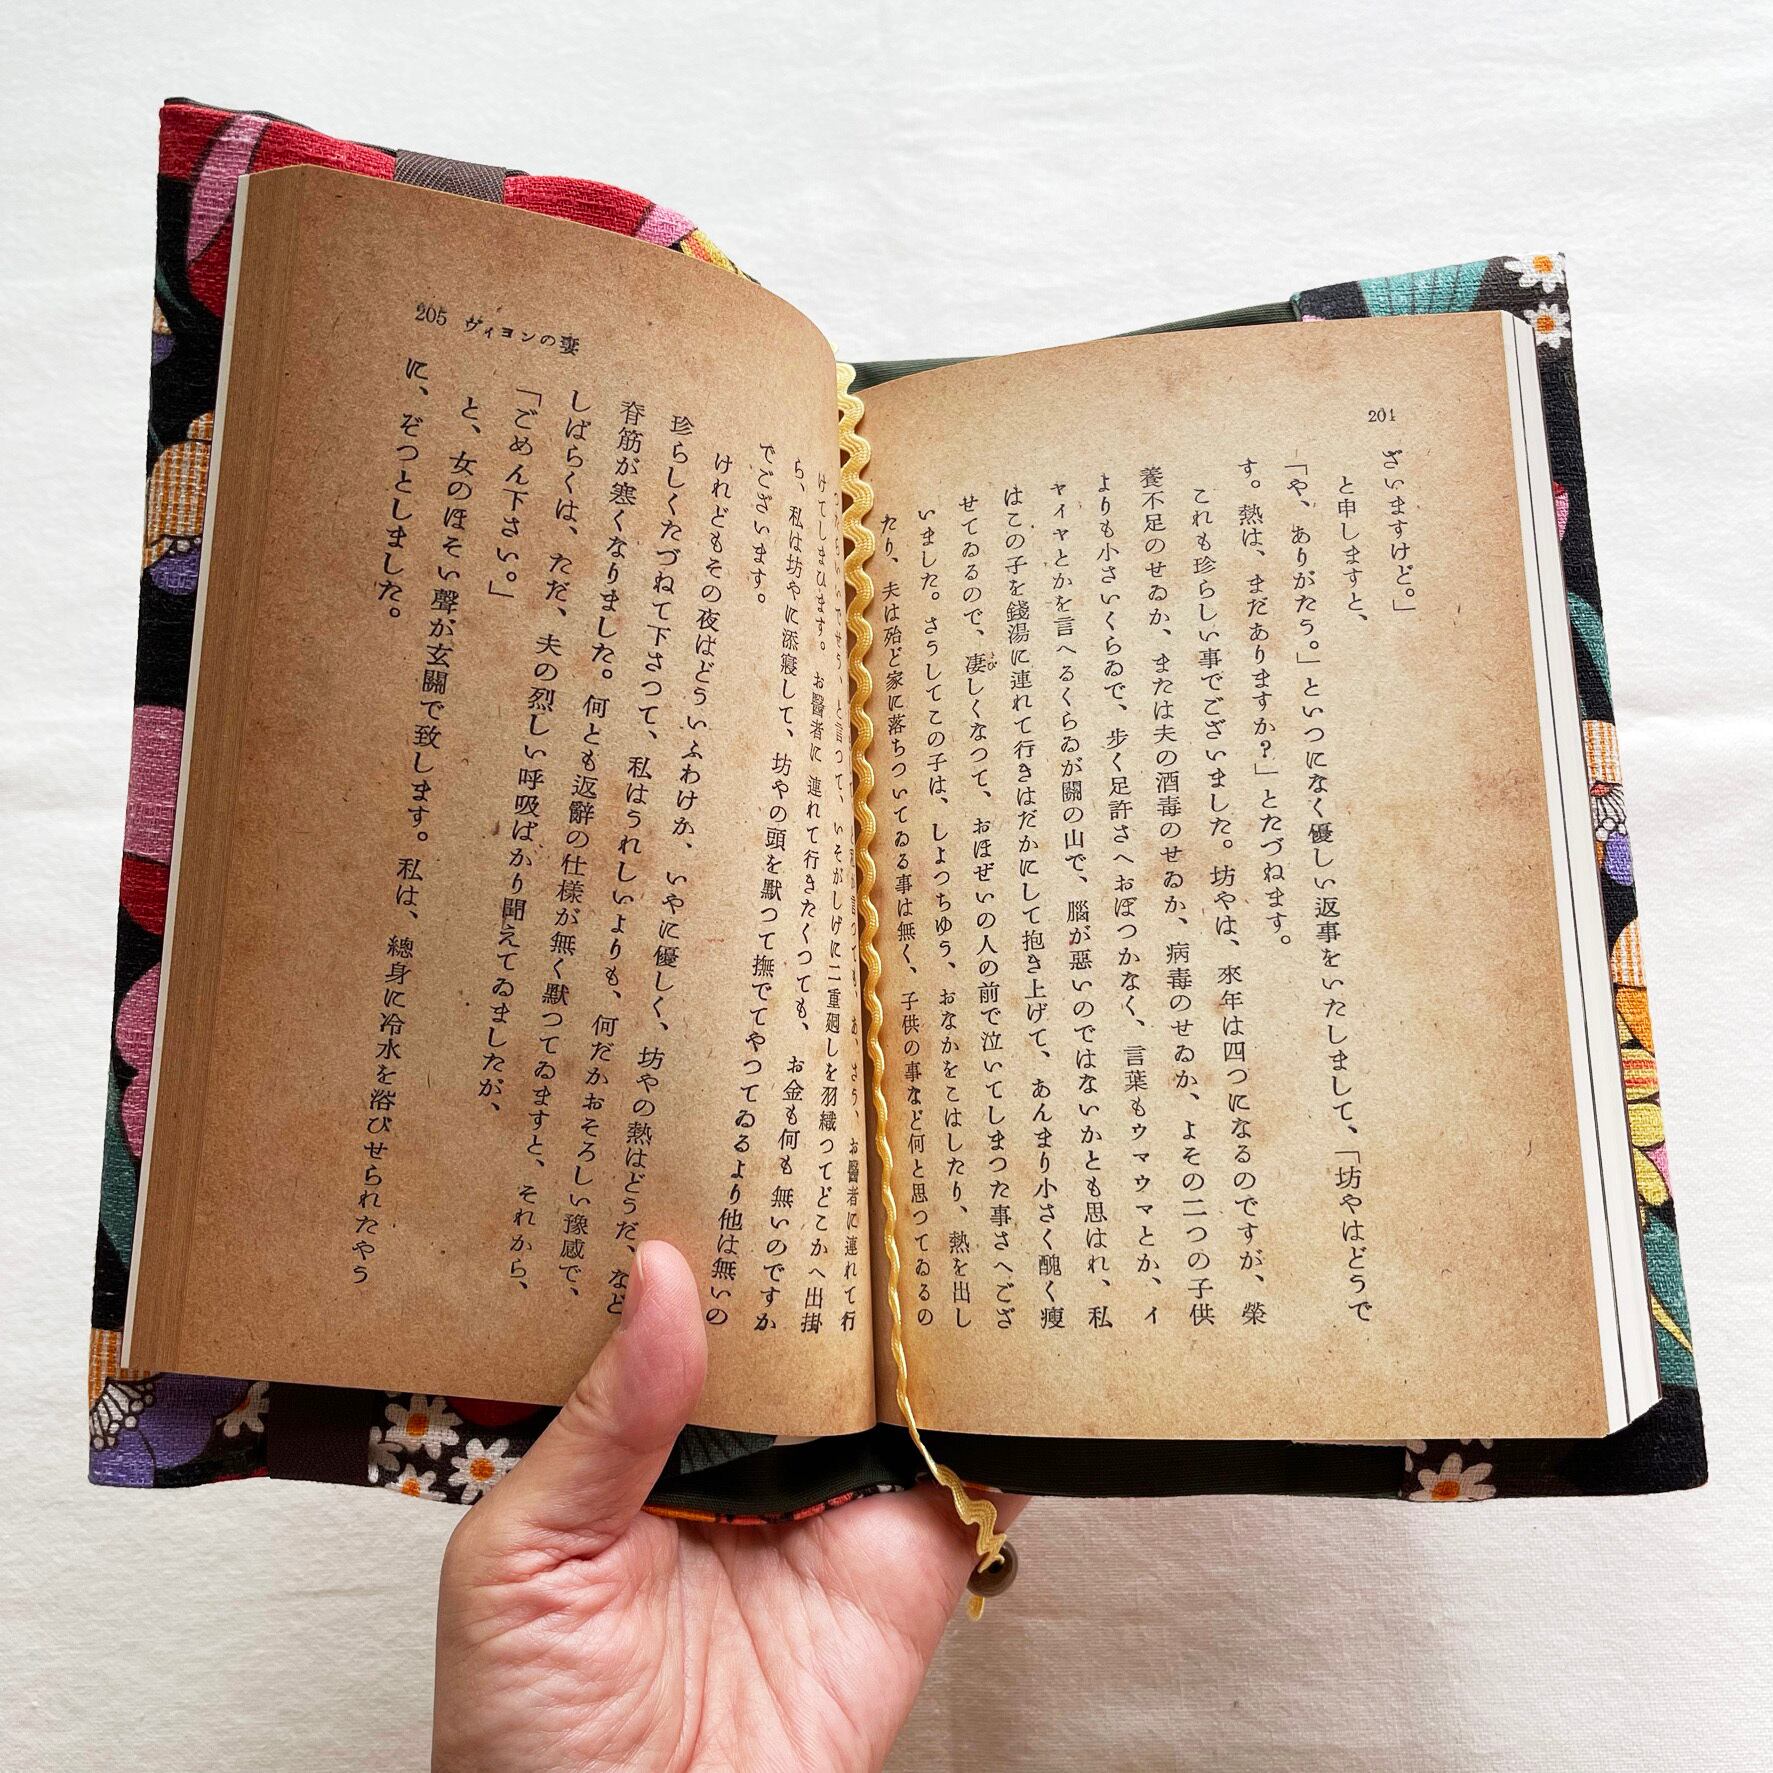 204
ざいますけど。」
と申しますと、
「や、ありがたう。」といつになく優しい返事をいたしまして、「坊やはどうで
す。熱は、まだありますか？」とたづねます。
これも珍らしい事でございました。坊やは、來年は四つになるのですが、榮
養不足のせゐか、または夫の酒毒のせゐか、病毒のせゐか、よその二つの子供
よりも小さいくらゐで、歩く足許さへおぼつかなく、言葉もウマウマとか、イ
ヤイヤとかを言へるくらゐが關の山で、腦が惡いのではないかとも思はれ、私
はこの子を錢湯に連れて行きはだかにして抱き上げて、あんまり小さく醜く瘦
せてゐるので、凄しくなつて、おほぜいの人の前で泣いてしまつた事さへござ
いました。さうしてこの子は、しよつちゆう、おなかをこはしたり、熱を出し
たり、夫は殆ど家に落ちついてゐる事は無く、子供の事など何と思つてゐるの
205 ヴィヨンの妻
あ、さう、お醫者に連れて行
つたらいいでせう、と言つて、いそがしげに二重廻しを羽織つてどこかへ出掛
けてしまひます。お醫者に連れて行きたくつても、お金も何も無いのですか
ら、私は坊やに添寢して、坊やの頭を默つて撫でてやつてゐるより他は無いの
でございます。
けれどもその夜はどういふわけか、いやに優しく、坊やの熱はどうだ、など
珍らしくたづねて下さつて、私はうれしいよりも、何だかおそろしい豫感で、
脊筋が寒くなりました。何とも返辭の仕樣が無く默つてゐますと、それから、
しばらくは、ただ、夫の烈しい呼吸ばかり聞えてゐましたが、
「ごめん下さい。」
と、女のほそい聲が玄關で致します。私は、總身に冷水を浴びせられたやう
に、ぞつとしました。